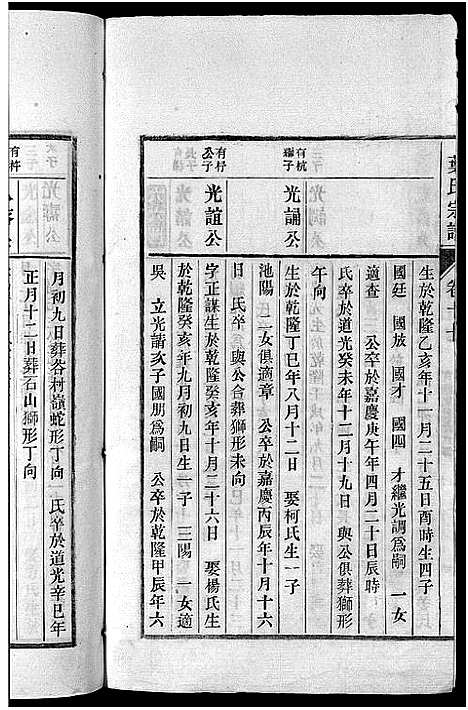 葉氏宗譜
生於乾隆乙亥年十一月二十五日酉時生四子
國廷 國放 國才 國四 才繼光調爲嗣 一女
適查 公卒於嘉慶庚午年四月二十日辰時
氏卒於道光癸未年十二月十九日 與公俱葬獅形
午向
有杭繼子
光誦公
生於乾隆丁巳年八月十二日 娶柯氏生一子
池陽 二女俱適章 公卒於嘉慶丙辰年十月十六
日 氏卒 與公合葬獅形未向
有杍公子
光誼公
字正謀生於乾隆癸亥年十月三十六日 娶楊氏生
於乾隆癸亥年九月初九日生一子 三陽 一女適
吳 立光請次子國朋爲嗣 公卒於乾隆甲辰年六
月初九日葬谷村嶺蛇形丁向 氏卒於道光辛巳年
正月十二日葬石山獅形丁向
有杵